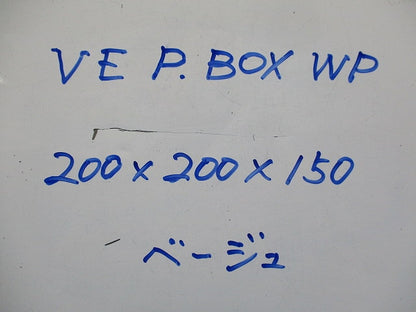 VE P. BOX WP
200 x 200 x 150
ベージュ